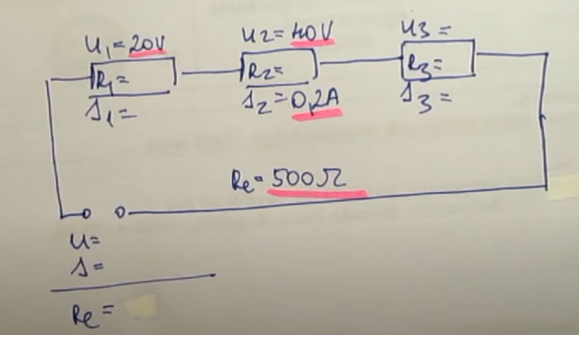 U1 = 20V
R1 =
I1 =
U2 = 40V
R2 =
I2 = 0,2A
U3 =
R3 =
I3 =
Re = 500Ω
U =
I =
Re =